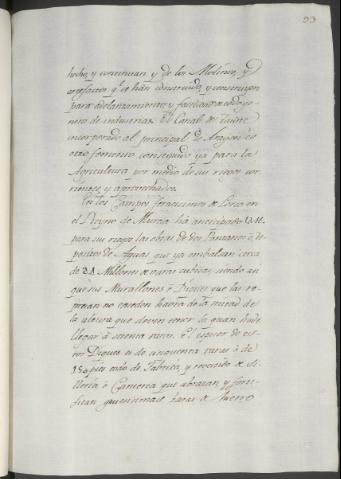 93
hecho, y continuan y de los Molinos, y
artefactos q.e se han construido, y construyen
para adelantamiento, y facilidad de todo ge-
nero de industrias. El Canal de Tauste
incorporado al principal de Aragon es
otro fomento conseguido ya para la
Agricultura por medio de sus riegos cor-
rientes, y aprovechados.
En los Campos feracisimos de Lorca en
el Reyno de Murcia há anticipado V.M.
para su riego las obras de dos Pantanos ó de-
positos de Aguas que ya embalsan cerca
de 24 Millones de varas cubicas, siendo asi
que sus Murallones ó Diques que las re-
presan no exceden hasta de la mitad de
la altura que deven tener la qual hade
llegar á setenta varas. El espesor de es-
tos Diques es de cinquenta varas ó de
150 pies todo de fabrica, y revestido de si-
lleria, ó Canteria que abrazan y forti-
fican gruesisimas barras de hierro